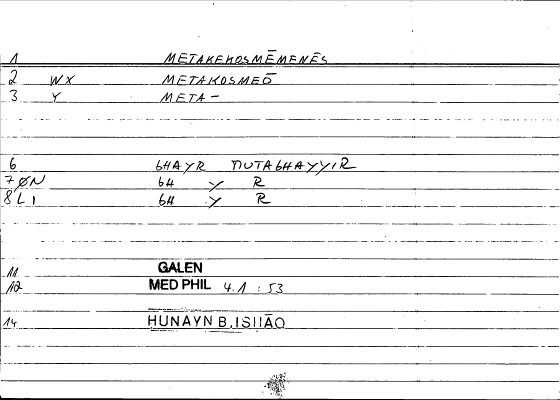 1 METAKEKOSMĒMENĒS
2 WX METAKOSMEŌ
3 Y META-
6 GHAYR MUTAGHAYYIR
7 ØN GH Y R
8 L1 GH Y R
11 GALEN
12 MED PHIL 4.1 : 53
14 HUNAYN B. ISHĀQ